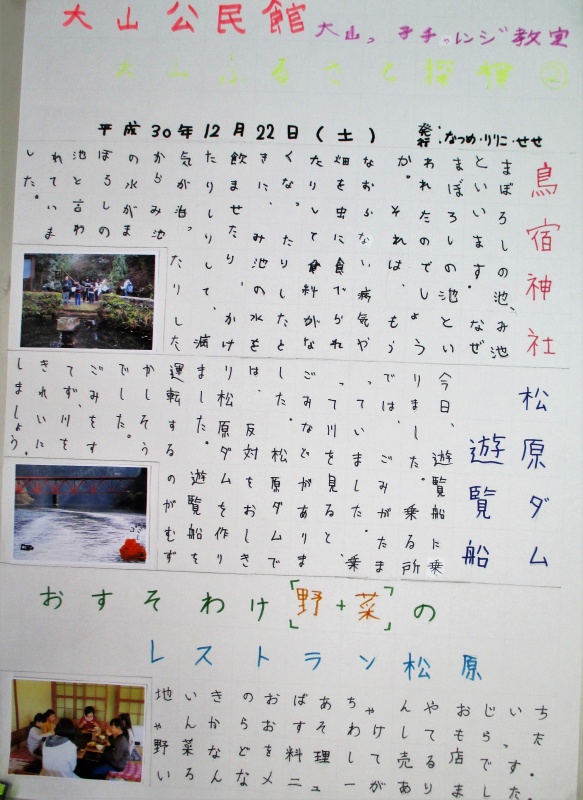 大山公民館 大山っ子チャレンジ教室
大山ふるさと探検②
平成30年12月22日(土) 発行:なつめ・りりこ・せせ
鳥宿神社
まぼろしの池、み池
といいます。なぜ
まぼろしの池とい
われたのでしょう
か。それは、もう
なおらない病気や
畑を虫に食べられ
たりして食料がな
くなったりしたと
きに、み池の水を
飲ませたり、かけ
たりして、病
気が治ったりした
からみ池
の水がま
ぼろしの
池と言わ
れていま
した。
松原ダム
遊覧船
今日、遊覧船に乗
りました。乗る所
では、ごみがたま
っていました。乗
って川を見ると、
ごみなどがありま
した。松原ダムで
は、反対をおしき
り松原ダムを作り
ました。遊覧船を
運転するのがむず
かしそう
でした。
ごみをす
てず、川を
きれいに
しましょう。
おすそわけ「野+菜」の
レストラン松原
地いきのおばあちゃんやおじいち
ゃんからおすそわけしてもらった
野菜などを料理して売る店です。
いろんなメニューがありました。